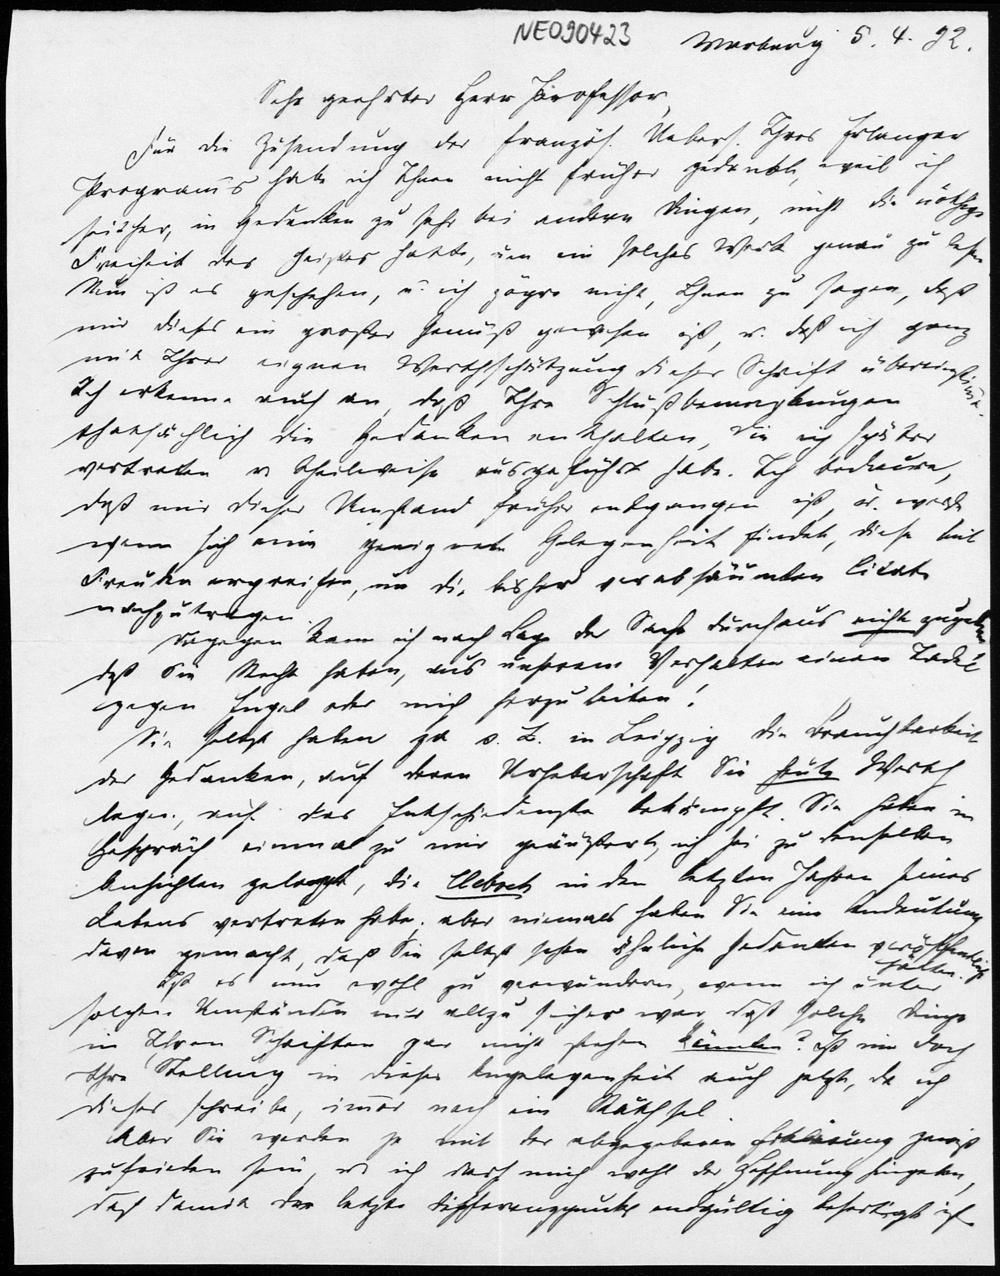 NE090423
Marburg 5. 4. 92.
Sehr geehrter Herr Professor,
Für die Zusendung der französ. Uebers. Ihres Erlanger
Programms habe ich Ihnen nicht früher gedankt, weil ich
seither, in Gedanken zu sehr bei andern Dingen, nicht die nöthige
Freiheit des Geistes hatte, um ein solches Werk genau zu lesen
Nun ist es geschehen, u. ich zögre nicht, Ihnen zu sagen, daß
mir dieses ein großer Genuß gewesen ist, u. daß ich ganz
mit Ihrer eignen Werthschätzung dieser Schrift übereinstimme.
Ich erkenne auch an, daß Ihre Schlußbemerkungen
thatsächlich die Gedanken enthalten, die ich später
vertreten u theilweise ausgeführt habe. Ich bedaure,
daß mir dieser Umstand früher entgangen ist, u. werde
wenn sich eine geeignete Gelegenheit findet, diese mit
Freuden ergreifen, um die bisher verabsäumten Citate
nachzutragen.
Dagegen kann ich nach Lage der Sache durchaus nicht zugeben
daß Sie Recht haben, aus unserem Verhalten einen Tadel
gegen Engel oder mich herzuleiten!
Sie selbst haben ja s. Z. in Leipzig die Brauchbarkeit
der Gedanken, auf deren Urheberschaft Sie heute Werth
legen, auf das Entschiedenste bekämpft. Sie haben im
Gespräch einmal zu mir geäußert, ich sei zu denselben
Ansichten gelangt, die Clebsch in den letzten Jahren seines
Lebens vertreten habe; aber niemals haben Sie eine Andeutung
davon gemacht, daß Sie selbst schon ähnliche Gedanken veröffentlicht
hätten.
Ist es nun wohl zu verwundern, wenn ich unter
solchen Umständen nur allzu sicher war, daß solche Dinge
in Ihren Schriften gar nicht stehen könnten? Ist mir doch
Ihre Stellung in dieser Angelegenheit auch jetzt, da ich
dieses schreibe, immer noch ein Räthsel.
Aber Sie werden ja mit der abgegebenen Erklärung gewiß
zufrieden sein, u ich darf mich wohl der Hoffnung hingeben,
daß damit der letzte Differenzpunkt endgültig beseitigt ist.